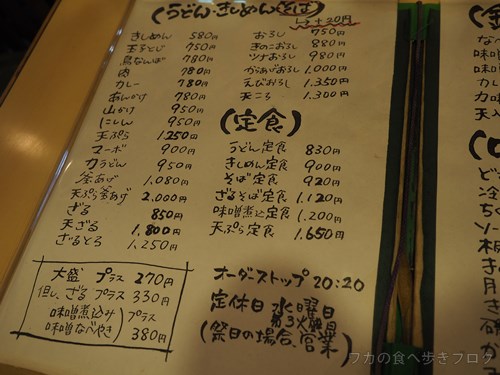 (うどん・きしめん・そば)
↳+20円
きしめん 580円
玉子とじ 750円
鳥なんば 780円
肉 780円
カレー 780円
あんかけ 780円
山かけ 950円
にしん 950円
天ぷら 1250円
マーボ 900円
力うどん 950円
釜あげ 1,080円
天ぷら釜あげ 2,000円
ざる 850円
天ざる 1,800円
ざるとろ 1,250円
おろし 750円
きのこおろし 880円
ツナおろし 980円
からあげおろし 1,000円
えびおろし 1,350円
天ころ 1,300円
(定食)
うどん定食 830円
きしめん定食 900円
そば定食 920円
ざるそば定食 1,120円
味噌煮込定食 1,200円
天ぷら定食 1,650円
大盛 プラス 270円
但し、ざる プラス 330円
味噌煮込み)プラス
味噌なべやき 380円
オーダーストップ 20:20
定休日 水曜日
第3火曜日
(祭日の場合、営業)
なべ
味噌
味噌
カレー
力味
天入
ど
冷
ち
ソー
板
き
月
き
砂
か
ワカの食べ歩きブログ